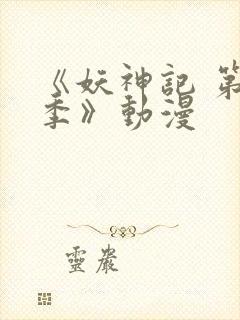 《妖神記 第
季》動漫
靈嚴